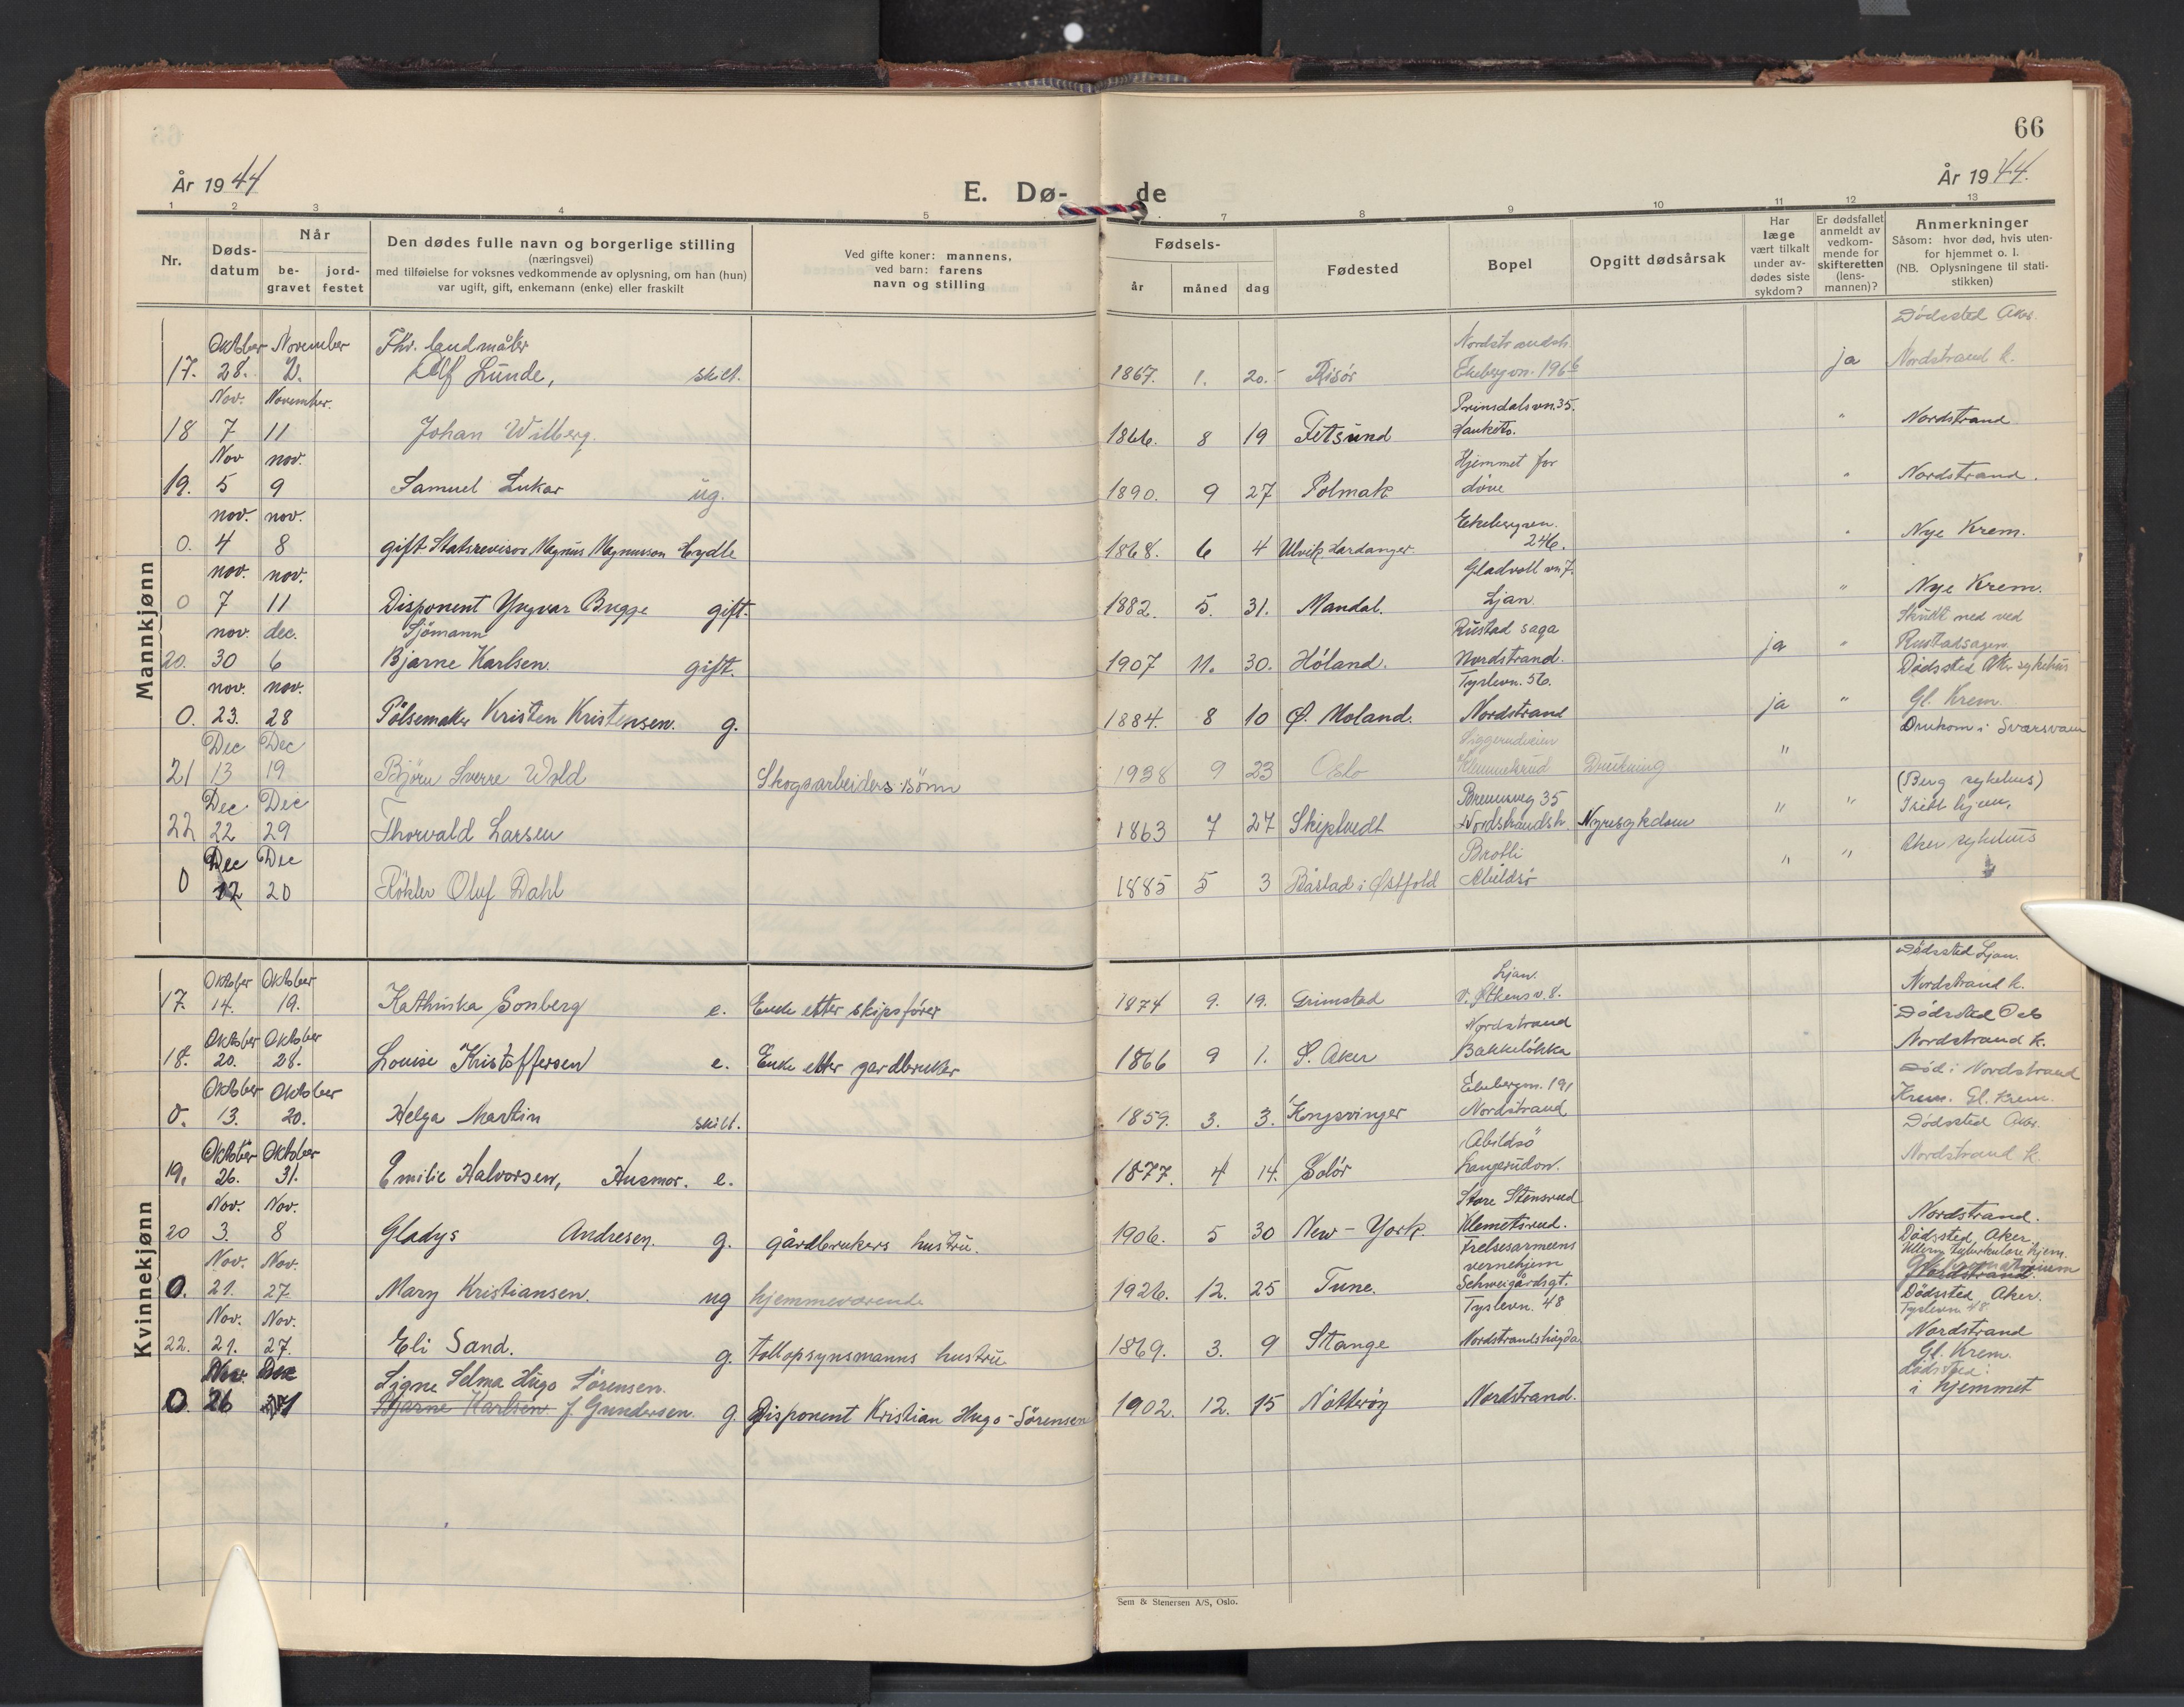 66
År 1944
E. Dø-
de
År 1944.
1 2 3 4 5 7 8 9 10 11 12 13
Nr.
Døds-
datum
Når
be-
gravet
jord-
festet
Den dødes fulle navn og borgerlige stilling
(næringsvei)
med tilføielse for voksnes vedkommende av oplysning, om han (hun)
var ugift, gift, enkemann (enke) eller fraskilt
Ved gifte koner: mannens,
ved barn: farens
navn og stilling
Fødsels-
år
måned
dag
Fødested
Bopel
Opgitt dødsårsak
Har
læge
vært tilkalt
under av-
dødes siste
sykdom?
Er dødsfallet
anmeldt av
vedkom-
mende for
skifteretten
(lens-
mannen)?
Anmerkninger
Såsom: hvor død, hvis uten-
for hjemmet o. l.
(NB. Oplysningene til stati-
stikken)
Mannkjønn
Dødssted Aker.
Oktober November Fhv. landmåler Nordstrandsh.
17. 28. 2. Alf Lunde, skilt. 1867. 1. 20. Risör Ekebergvn. 196b ja Nordstrand k.
Nov. November. Prinsdalsvn. 35.
18 7 11 Johan Wilberg. 1866. 8 19 Fetsund Hauketo. " Nordstrand
Nov nov. Hjemmet for
19. 5 9 Samuel Lukas ug. 1890. 9 27 Polmak döve " Nordstrand.
nov. nov. Ekebergvn.
0. 4 8 gift Statsrevisor Magnus Magnusson Lydle 1868. 6 4 Ulvik, Hardanger. 246. " Nye Krem.
nov. nov. Gladvoll vn. 7.
0 7 11 Disponent Yngvar Bugge gift. 1882. 5. 31. Mandal. Ljan. " Nye Krem.
nov. dec. Sjömann Rustad saga Skutt ned ved
20. 30 6 Bjarne Karlsen. gift. 1907 11. 30. Höland. Nordstrand. ja " Rustadsagen.
nov. nov. Tyslevn. 56. Dødssted Aker sykehus
0. 23. 28 Pölsemaker Kristen Kristensen. g. 1884. 8 10 Ø. Moland. Nordstrand ja " Gl. Krem.
Dec Dec Siggerudveien Omkom i Svarsvann
21 13 19 Björn Sverre Wold Skogsarbeiders sönn 1938 9 23 Oslo Klemmetsrud Drukning "
Dec Dec Bremsveg 35 (Berg sykehus)
22 22 29 Thorvald Larsen 1863 7 27 Skiptvedt Nordstrandsh. Nyresykdom " " I sitt hjem,
Dec Dec Brotli Aker sykehus
0 12 20 Rökter Oluf Dahl 1885 5 3 Båstad i Østfold Abildsö " "
Kvinnekjønn
Dødssted Ljan.
Oktober Oktober Ljan.
17. 14. 19. Kathinka Sonberg e. Enke etter skipsförer 1874 9. 19. Grimstad v. 8. Nordstrand k.
Oktober Oktober Nordstrand Dødssted Oslo
18. 20. 28. Louise Kristoffersen e. Enke etter gardbruker 1866 9 1. Ø. Aker Bakkelökka Nordstrand k.
Oktober Oktober Ekebergvn. 191 Död i Nordstrand
0. 13. 20. Helga Martin skilt. 1859. 3. 3. Kongsvinger Nordstrand Krem. Gl. Krem.
Oktober Oktober Abildsö Dødssted Aker.
19. 26. 31. Emilie Halvorsen, Husmor. e. 1877. 4 14. Solör Langerudvn. Nordstrand k.
Nov. Nov. Store Stensrud
20 3. 8 Gladys Andresen. g. gårdbrukers hustru. 1906. 5 30 New-York. Klemetsrud. Nordstrand.
Nov. Nov. Frelsesarmeens Dødssted, Aker.
vernehjem Ullern tuberkulose hjem.
0. 21. 27. Mary Kristiansen. ug hjemmeværende 1926. 12. 25 Tune. Schweigårdsgt. Nordstrand.
Nov. Nov. Tyslevn. 48 Dødssted, Aker.
Tyslevn. 48
22. 21. 27. Eli Sand. g. tollopsynsmanns hustru 1869. 3. 9 Stange Nordstrandshögda Nordstrand
Nov. Dec Signe Selma Hugo Sörensen. Gl. Krem.
Dødssted:
0. 26 1 Bjarne Karlsen f. Gundersen. g. Disponent Kristian Hugo-Sörensen 1902. 12. 15 Nötteröy Nordstrand. i hjemmet
Sem & Stenersen A/S, Oslo.